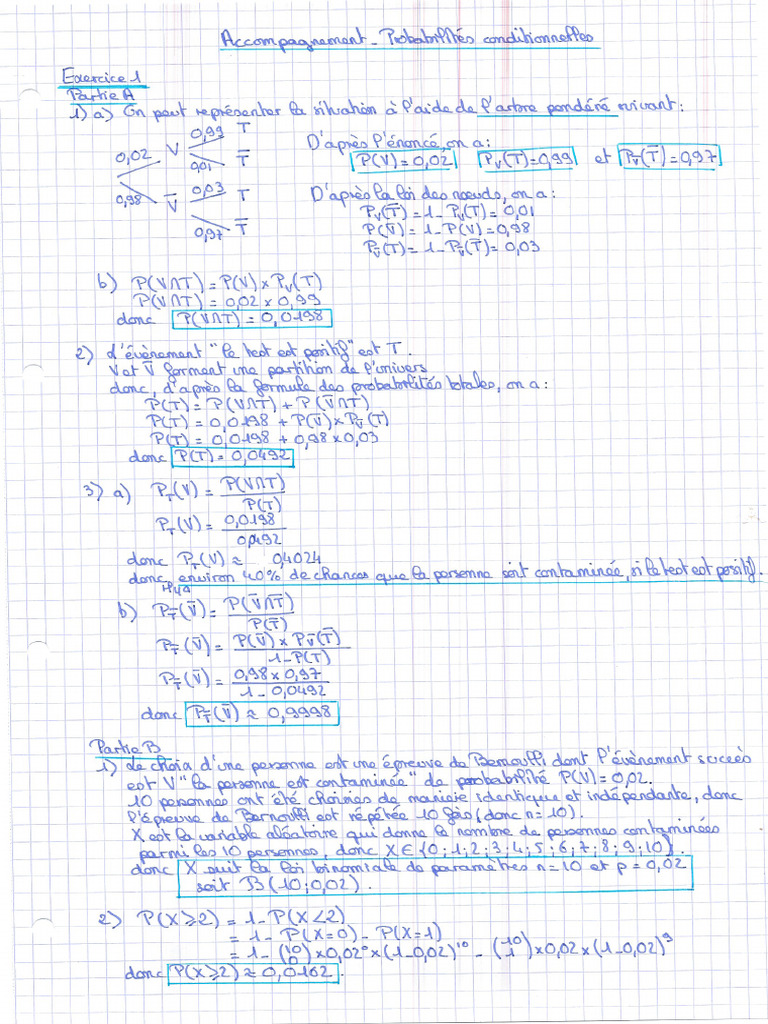 Accompagnement - Probabilités conditionnelles
Exercice 1
Partie A
1) a) On peut représenter la situation à l'aide de l'arbre pondéré suivant :
0,02 V 0,99 T
0,01 T̅
0,98 V̅ 0,03 T
0,97 T̅
D'après l'énoncé, on a :
P(V) = 0,02 P_V(T) = 0,99 et P_V̅(T̅) = 0,97
D'après la loi des nœuds, on a :
P_V(T̅) = 1 - P_V(T) = 0,01
P(V̅) = 1 - P(V) = 0,98
P_V̅(T) = 1 - P_V̅(T̅) = 0,03
b) P(V∩T) = P(V) × P_V(T)
P(V∩T) = 0,02 × 0,99
donc P(V∩T) = 0,0198
2) L'évènement "le test est positif" est T.
V et V̅ forment une partition de l'univers
donc, d'après la formule des probabilités totales, on a :
P(T) = P(V∩T) + P(V̅∩T)
P(T) = 0,0198 + P(V̅) × P_V̅(T)
P(T) = 0,0198 + 0,98 × 0,03
donc P(T) = 0,0492
3) a) P_T(V) = P(V∩T) / P(T)
P_T(V) = 0,0198 / 0,0492
donc P_T(V) ≈ 0,4024
donc, environ 40% de chances que la personne soit contaminée, si le test est positif.
Il y a
b) P_T̅(V̅) = P(V̅∩T̅) / P(T̅)
P_T̅(V̅) = P(V̅) × P_V̅(T̅) / 1 - P(T)
P_T̅(V̅) = 0,98 × 0,97 / 1 - 0,0492
donc P_T̅(V̅) ≈ 0,9998
Partie B
1) Le choix d'une personne est une épreuve de Bernoulli dont l'évènement succès
est V "la personne est contaminée" de probabilité P(V) = 0,02.
10 personnes ont été choisies de manière identique et indépendante, donc
l'épreuve de Bernoulli est répétée 10 fois (donc n = 10).
X est la variable aléatoire qui donne le nombre de personnes contaminées
parmi les 10 personnes, donc X ∈ {0 ; 1 ; 2 ; 3 ; 4 ; 5 ; 6 ; 7 ; 8 ; 9 ; 10}.
donc X suit la loi binomiale de paramètres n = 10 et p = 0,02
soit B(10 ; 0,02).
2) P(X ≥ 2) = 1 - P(X < 2)
= 1 - P(X = 0) - P(X = 1)
= 1 - (10 0) × 0,02⁰ × (1 - 0,02)¹⁰ - (10 1) × 0,02 × (1 - 0,02)⁹
donc P(X ≥ 2) ≈ 0,0162.